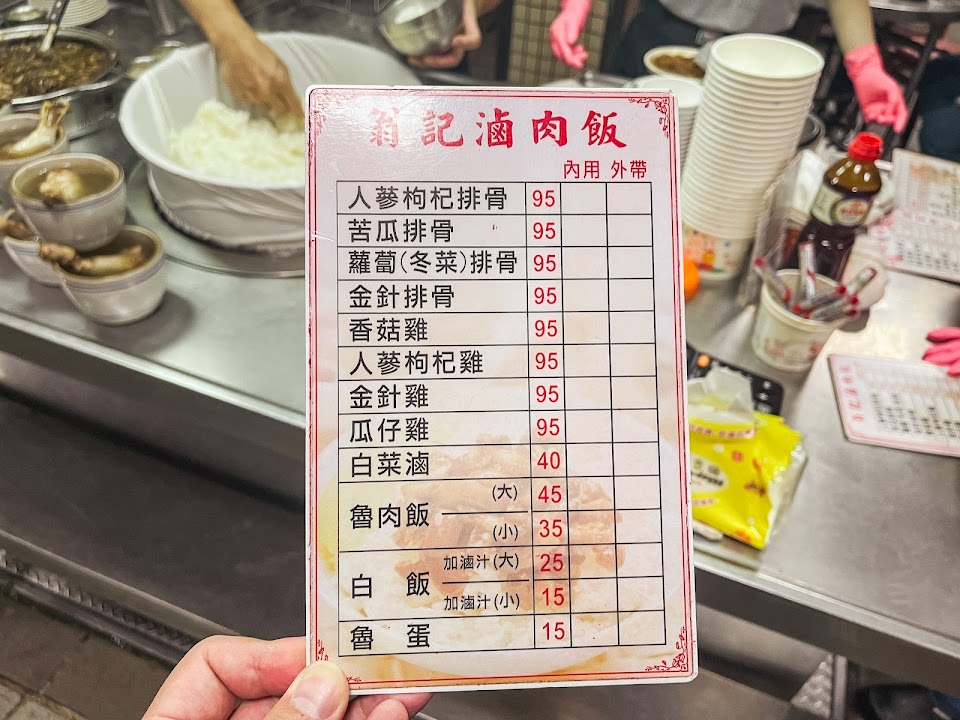 翁記滷肉飯
內用 外帶
人蔘枸杞排骨 95
苦瓜排骨 95
蘿蔔(冬菜)排骨 95
金針排骨 95
香菇雞 95
人蔘枸杞雞 95
金針雞 95
瓜仔雞 95
白菜滷 40
魯肉飯 (大) 45
(小) 35
白飯 加滷汁(大) 25
加滷汁(小) 15
魯蛋 15